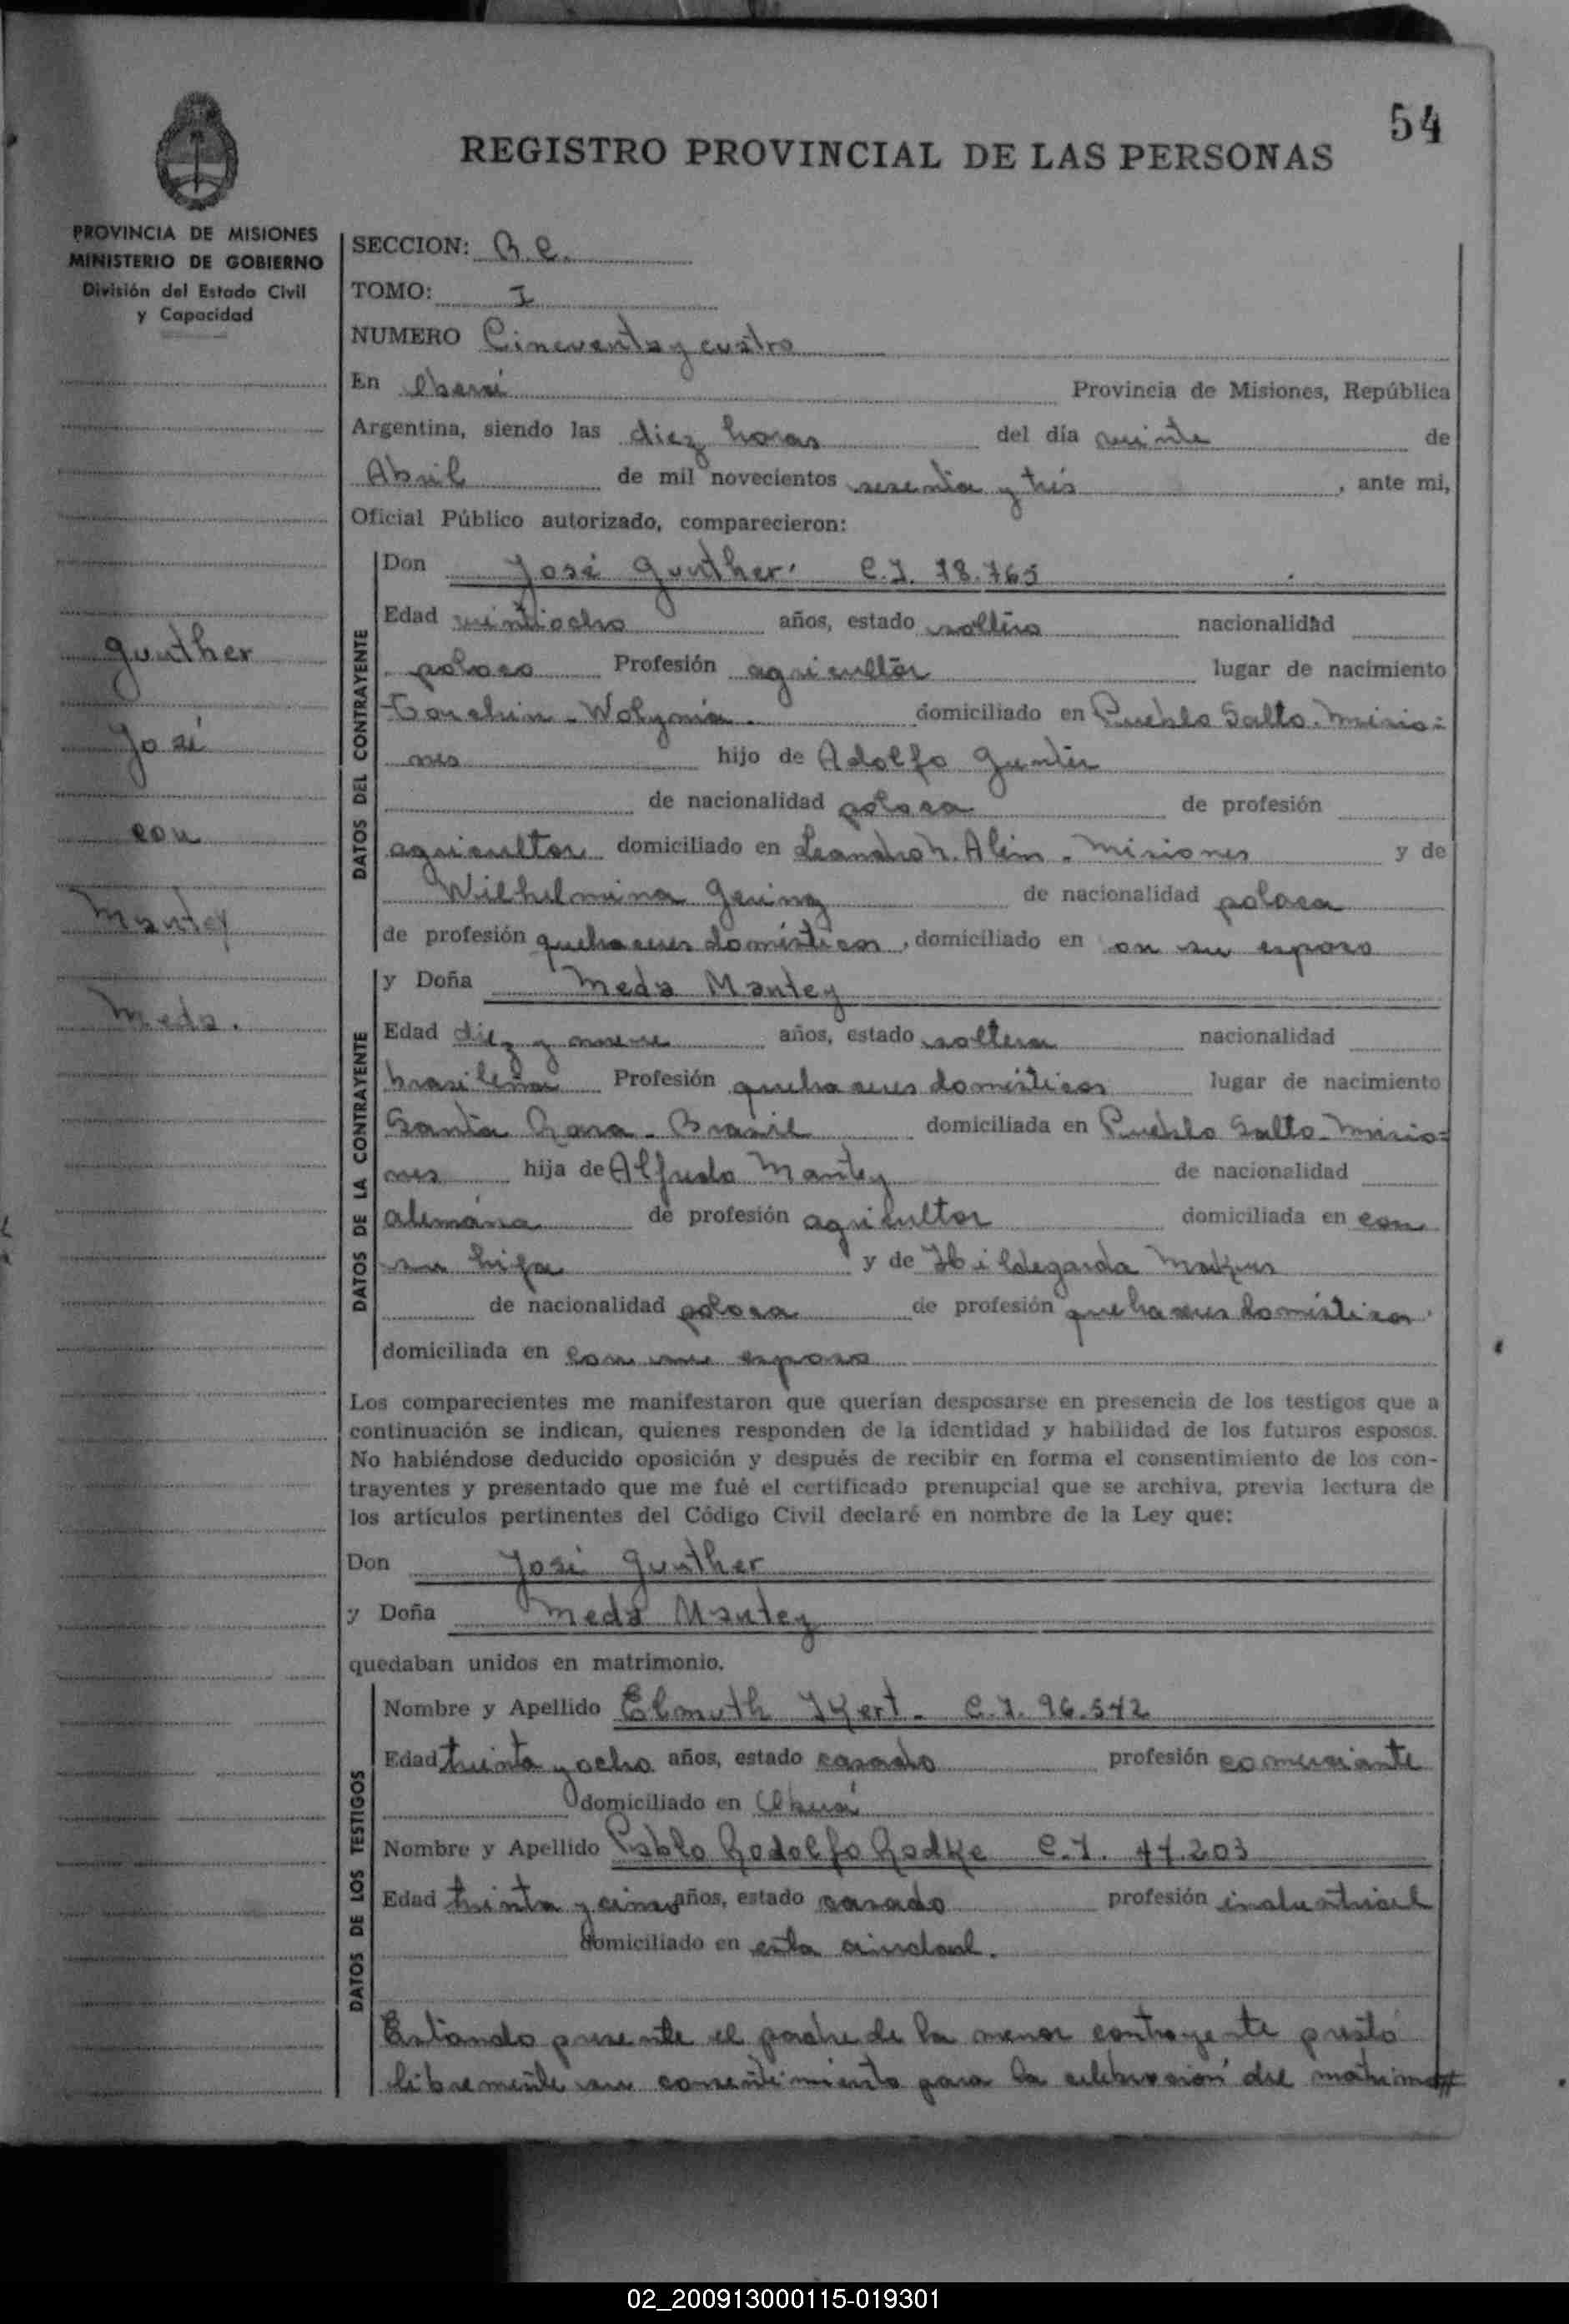 54
REGISTRO PROVINCIAL DE LAS PERSONAS
PROVINCIA DE MISIONES
MINISTERIO DE GOBIERNO
División del Estado Civil
y Capacidad
SECCION:
TOMO: I
NUMERO Cincuenta y cuatro
En Oberá Provincia de Misiones, República
Argentina, siendo las diez horas del día veinte de
Abril de mil novecientos sesenta y trés, ante mi,
Oficial Público autorizado, comparecieron:
DATOS DEL CONTRAYENTE
Don José Gunther. C.I. 18.765
Edad veintiocho años, estado soltero nacionalidad
polaco Profesión agricultor lugar de nacimiento
Torchin - Wolynia. domiciliado en Pueblo Salto. Misio=
nes hijo de Adolfo Gunter
de nacionalidad polaca de profesión
agricultor domiciliado en Leandro N. Alem - Misiones y de
Wilhelmina Gering de nacionalidad polaca
de profesión quehaceres domésticos, domiciliado en con su esposo
Gunther
José
con
Mantey
Meda.
DATOS DE LA CONTRAYENTE
y Doña Meda Mantey
Edad diez y nueve años, estado soltera nacionalidad
brasileña Profesión quehaceres domésticos lugar de nacimiento
Santa Rosa - Brasil domiciliada en Pueblo Salto - Misio=
nes hija de Alfredo Mantey de nacionalidad
alemána de profesión agricultor domiciliada en con
su hija y de Hildegarda
de nacionalidad polaca de profesión quehaceres domésticos
domiciliada en con su esposo
Los comparecientes me manifestaron que querían desposarse en presencia de los testigos que a
continuación se indican, quienes responden de la identidad y habilidad de los futuros esposos.
No habiéndose deducido oposición y después de recibir en forma el consentimiento de los con-
trayentes y presentado que me fué el certificado prenupcial que se archiva, previa lectura de
los artículos pertinentes del Código Civil declaré en nombre de la Ley que:
Don José Gunther
y Doña Meda Mantey
quedaban unidos en matrimonio.
DATOS DE LOS TESTIGOS
Nombre y Apellido Elmuth Ikert - C.I. 96.542
Edad treinta y ocho años, estado casado profesión comerciante
domiciliado en Oberá
Nombre y Apellido Pablo Rodolfo Radke C.I. 47.203
Edad treinta y cinco años, estado casado profesión industrial
domiciliado en esta ciudad.
Estando presente el padre de la menor contrayente prestó
libremente su consentimiento para la celebración del matrimo#
02_200913000115-019301